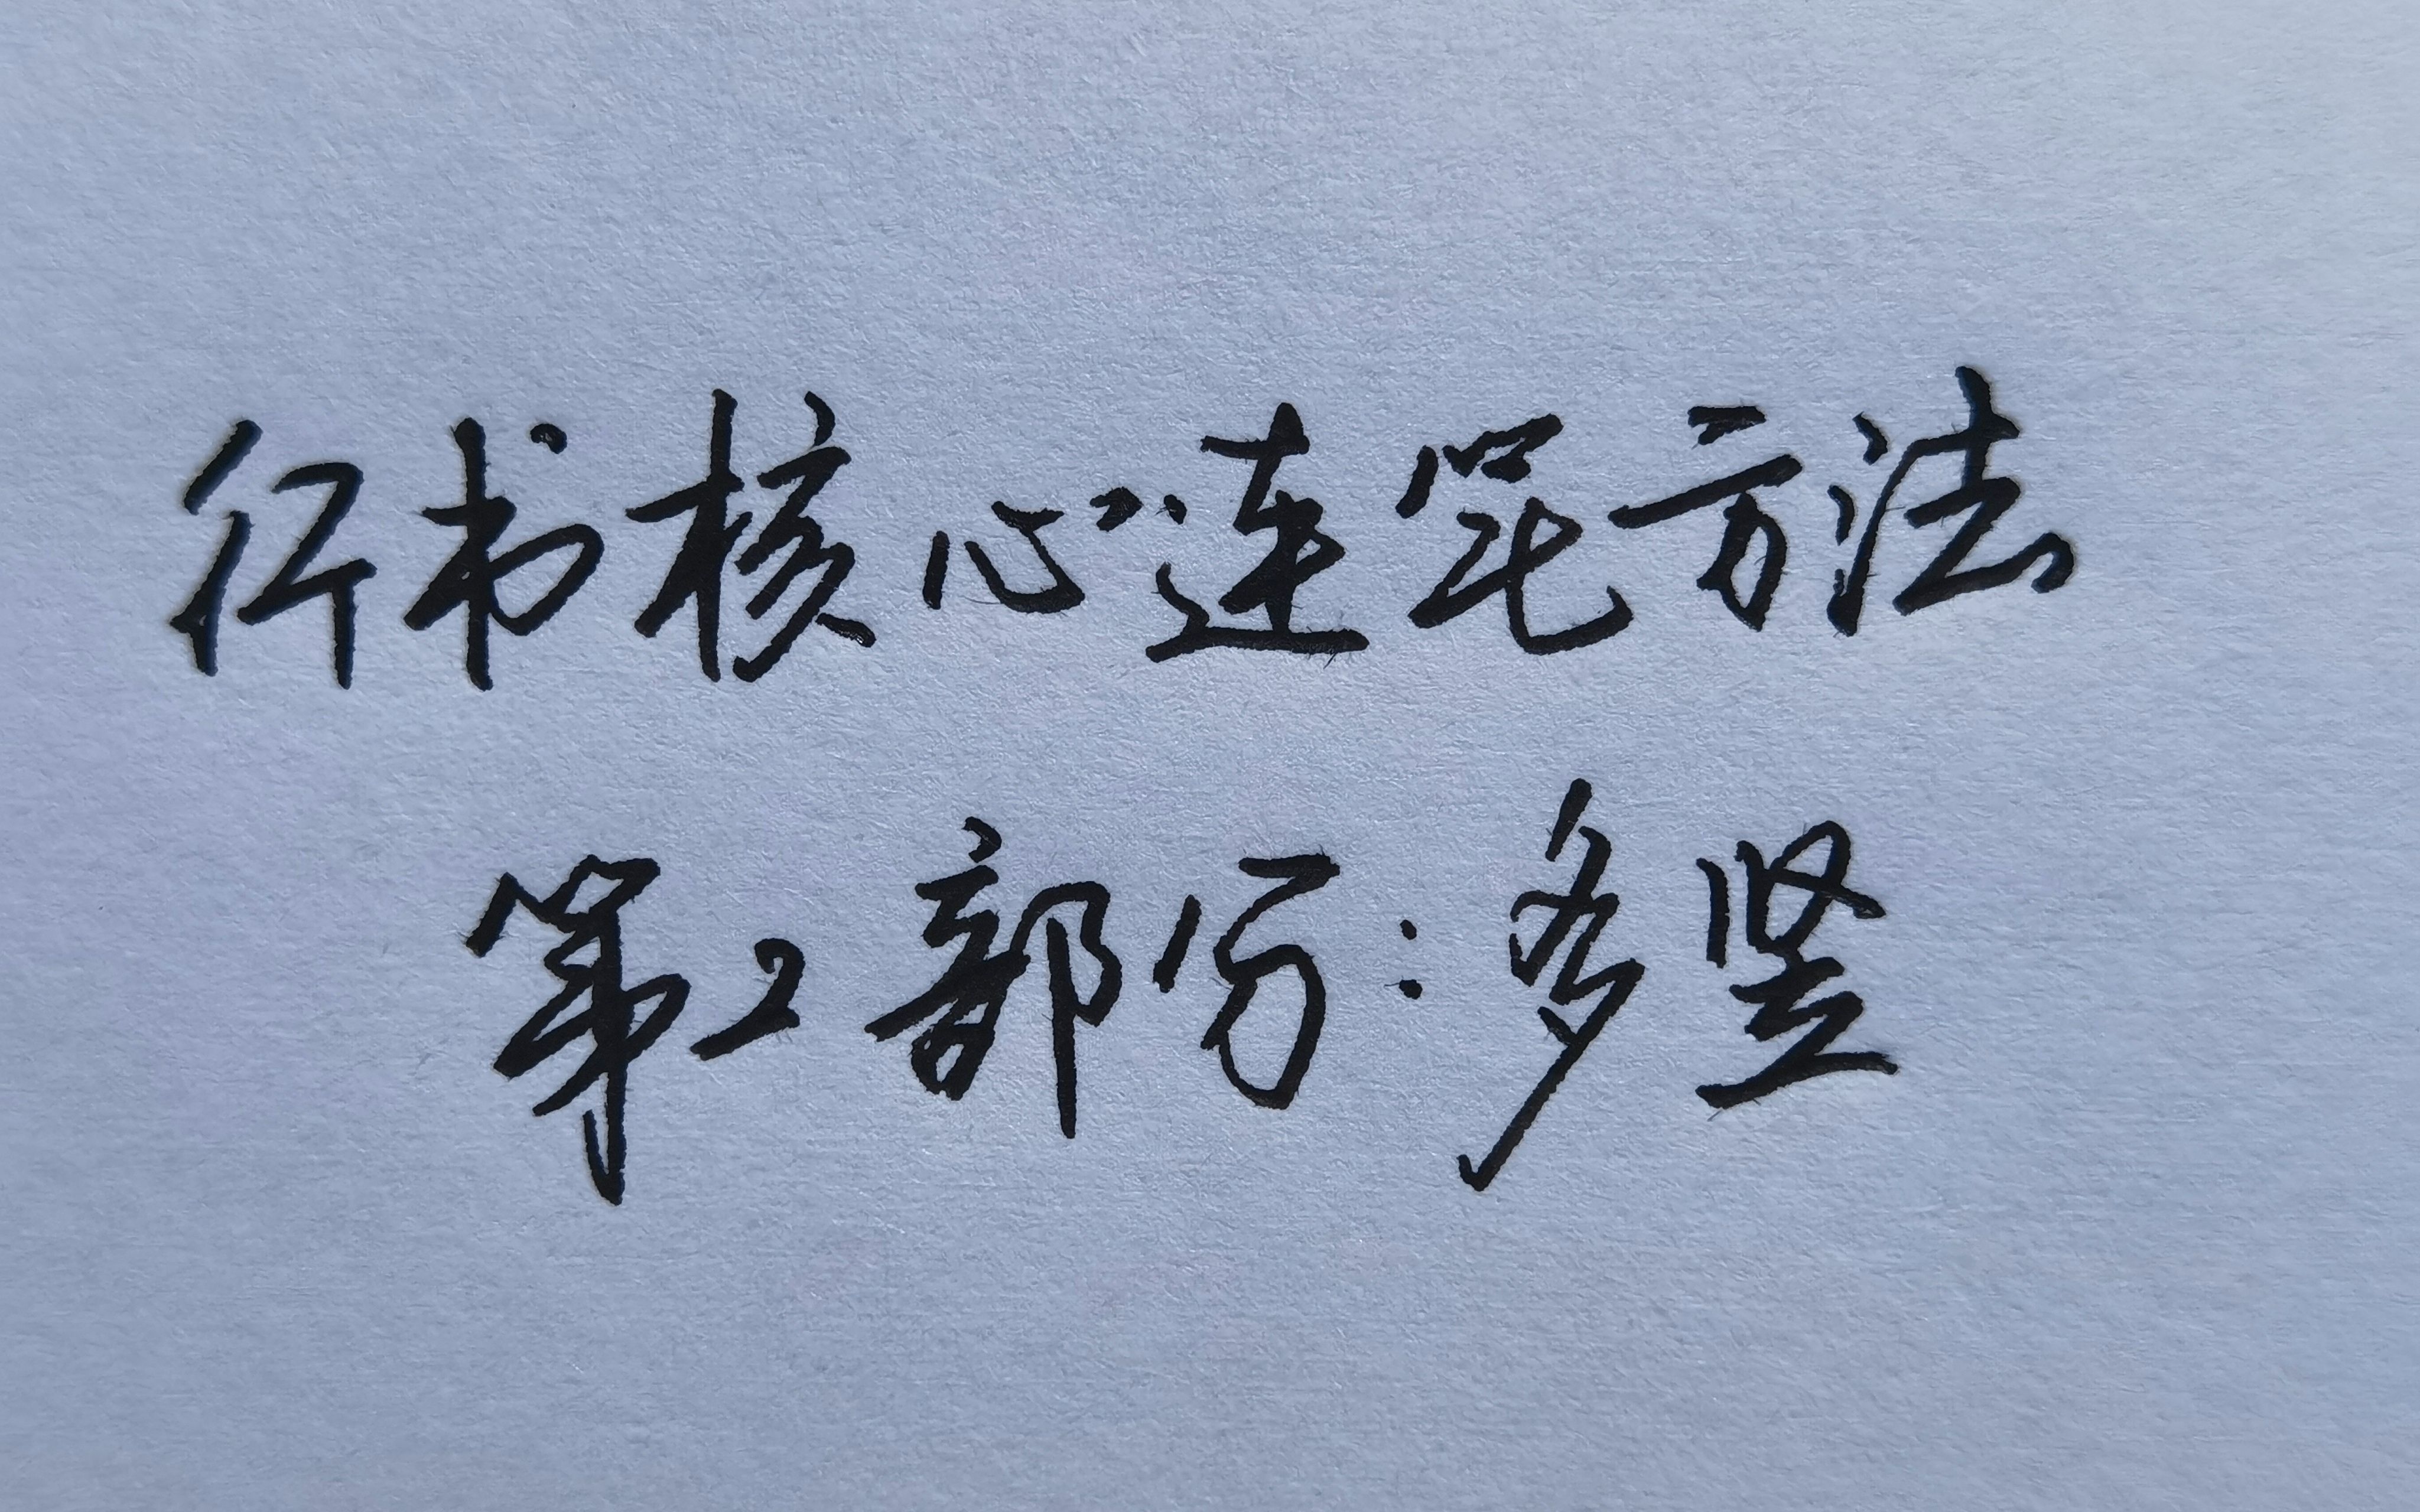 行书核心连笔方法
第2部份:多竖